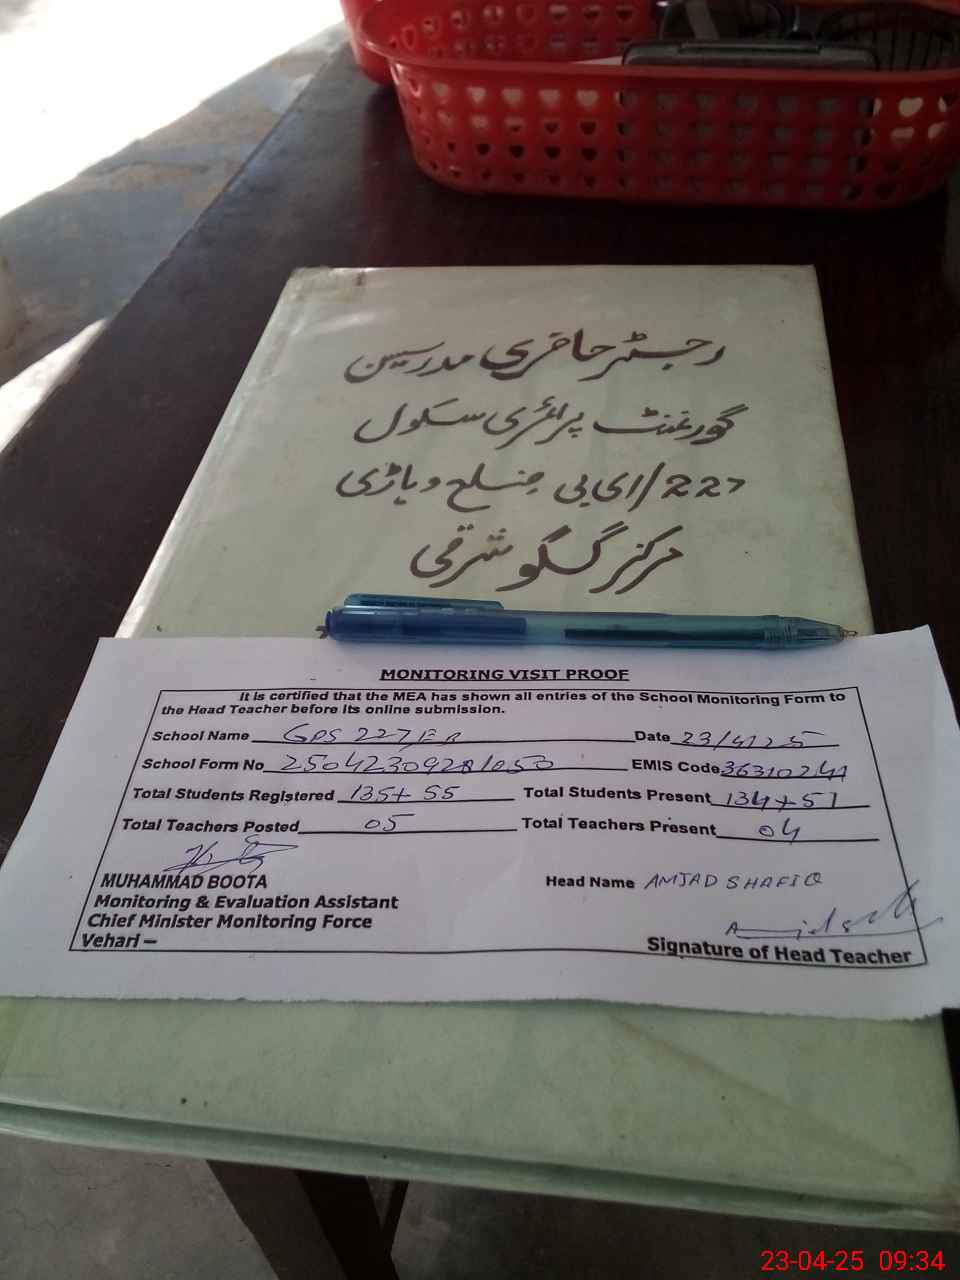 رجسٹر حاضری مدرسین
گورنمنٹ پرائمری سکول
227/ای بی ضلع وہاڑی
مرکز گگو شرقی
MONITORING VISIT PROOF
It is certified that the MEA has shown all entries of the School Monitoring Form to
the Head Teacher before its online submission.
School Name GPS 227/EB Date 23/4/25
School Form No EMIS Code 36310241
Total Students Registered 135+55 Total Students Present 134+51
Total Teachers Posted 05 Total Teachers Present 04
MUHAMMAD BOOTA Head Name AMJAD SHAFIQ
Monitoring & Evaluation Assistant
Chief Minister Monitoring Force
Vehari – Signature of Head Teacher
23-04-25 09:34